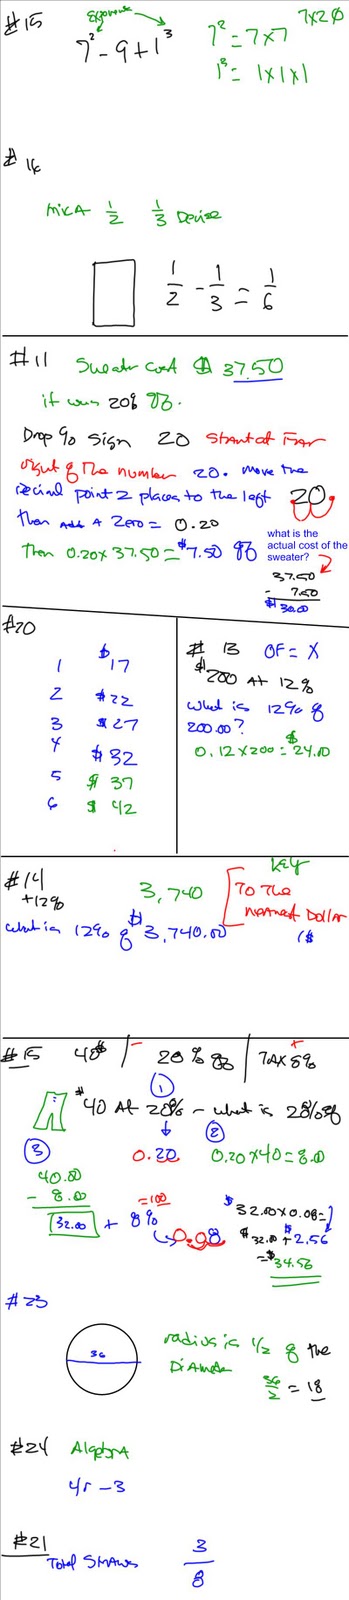 #15
Exponents
7² - 9 + 1³
7² = 7x7
7x2
1³ = 1x1x1
#16
Mica 1/2 1/3 Denise
1/2 - 1/3 = 1/6
#11 Sweater cost $37.50
it was 20% off.
Drop % sign 20 Start at Far
right of the number 20. move the
decimal point 2 places to the left 20.
then add A Zero = 0.20
Then 0.20 x 37.50 = $7.50 off
what is the
actual cost of the
sweater?
37.50
- 7.50
$30.00
#20
$
1 17
2 $22
3 $27
4 $32
5 $37
6 $42
#13 OF = X
$200 AT 12%
What is 12% of
200.00?
0.12 x 200 = $24.00
#14
+12%
3,740
Key
To The
nearest Dollar
1$
what is 12% of $3,740.00
#15 40$ - 20% off TAX 8% +
1
$40 AT 20% - what is 20% of
3
0.20
2
0.20 x 40 = 8.00
40.00
- 8.00
32.00 + 8%
=100
0.08
$32.00 x 0.08 =
$32.00 + $2.56
= $34.56
#23
36
radius is 1/2 of the
Diameter
36/2 = 18
#24 Algebra
4r - 3
#21
Total Straws 3/8